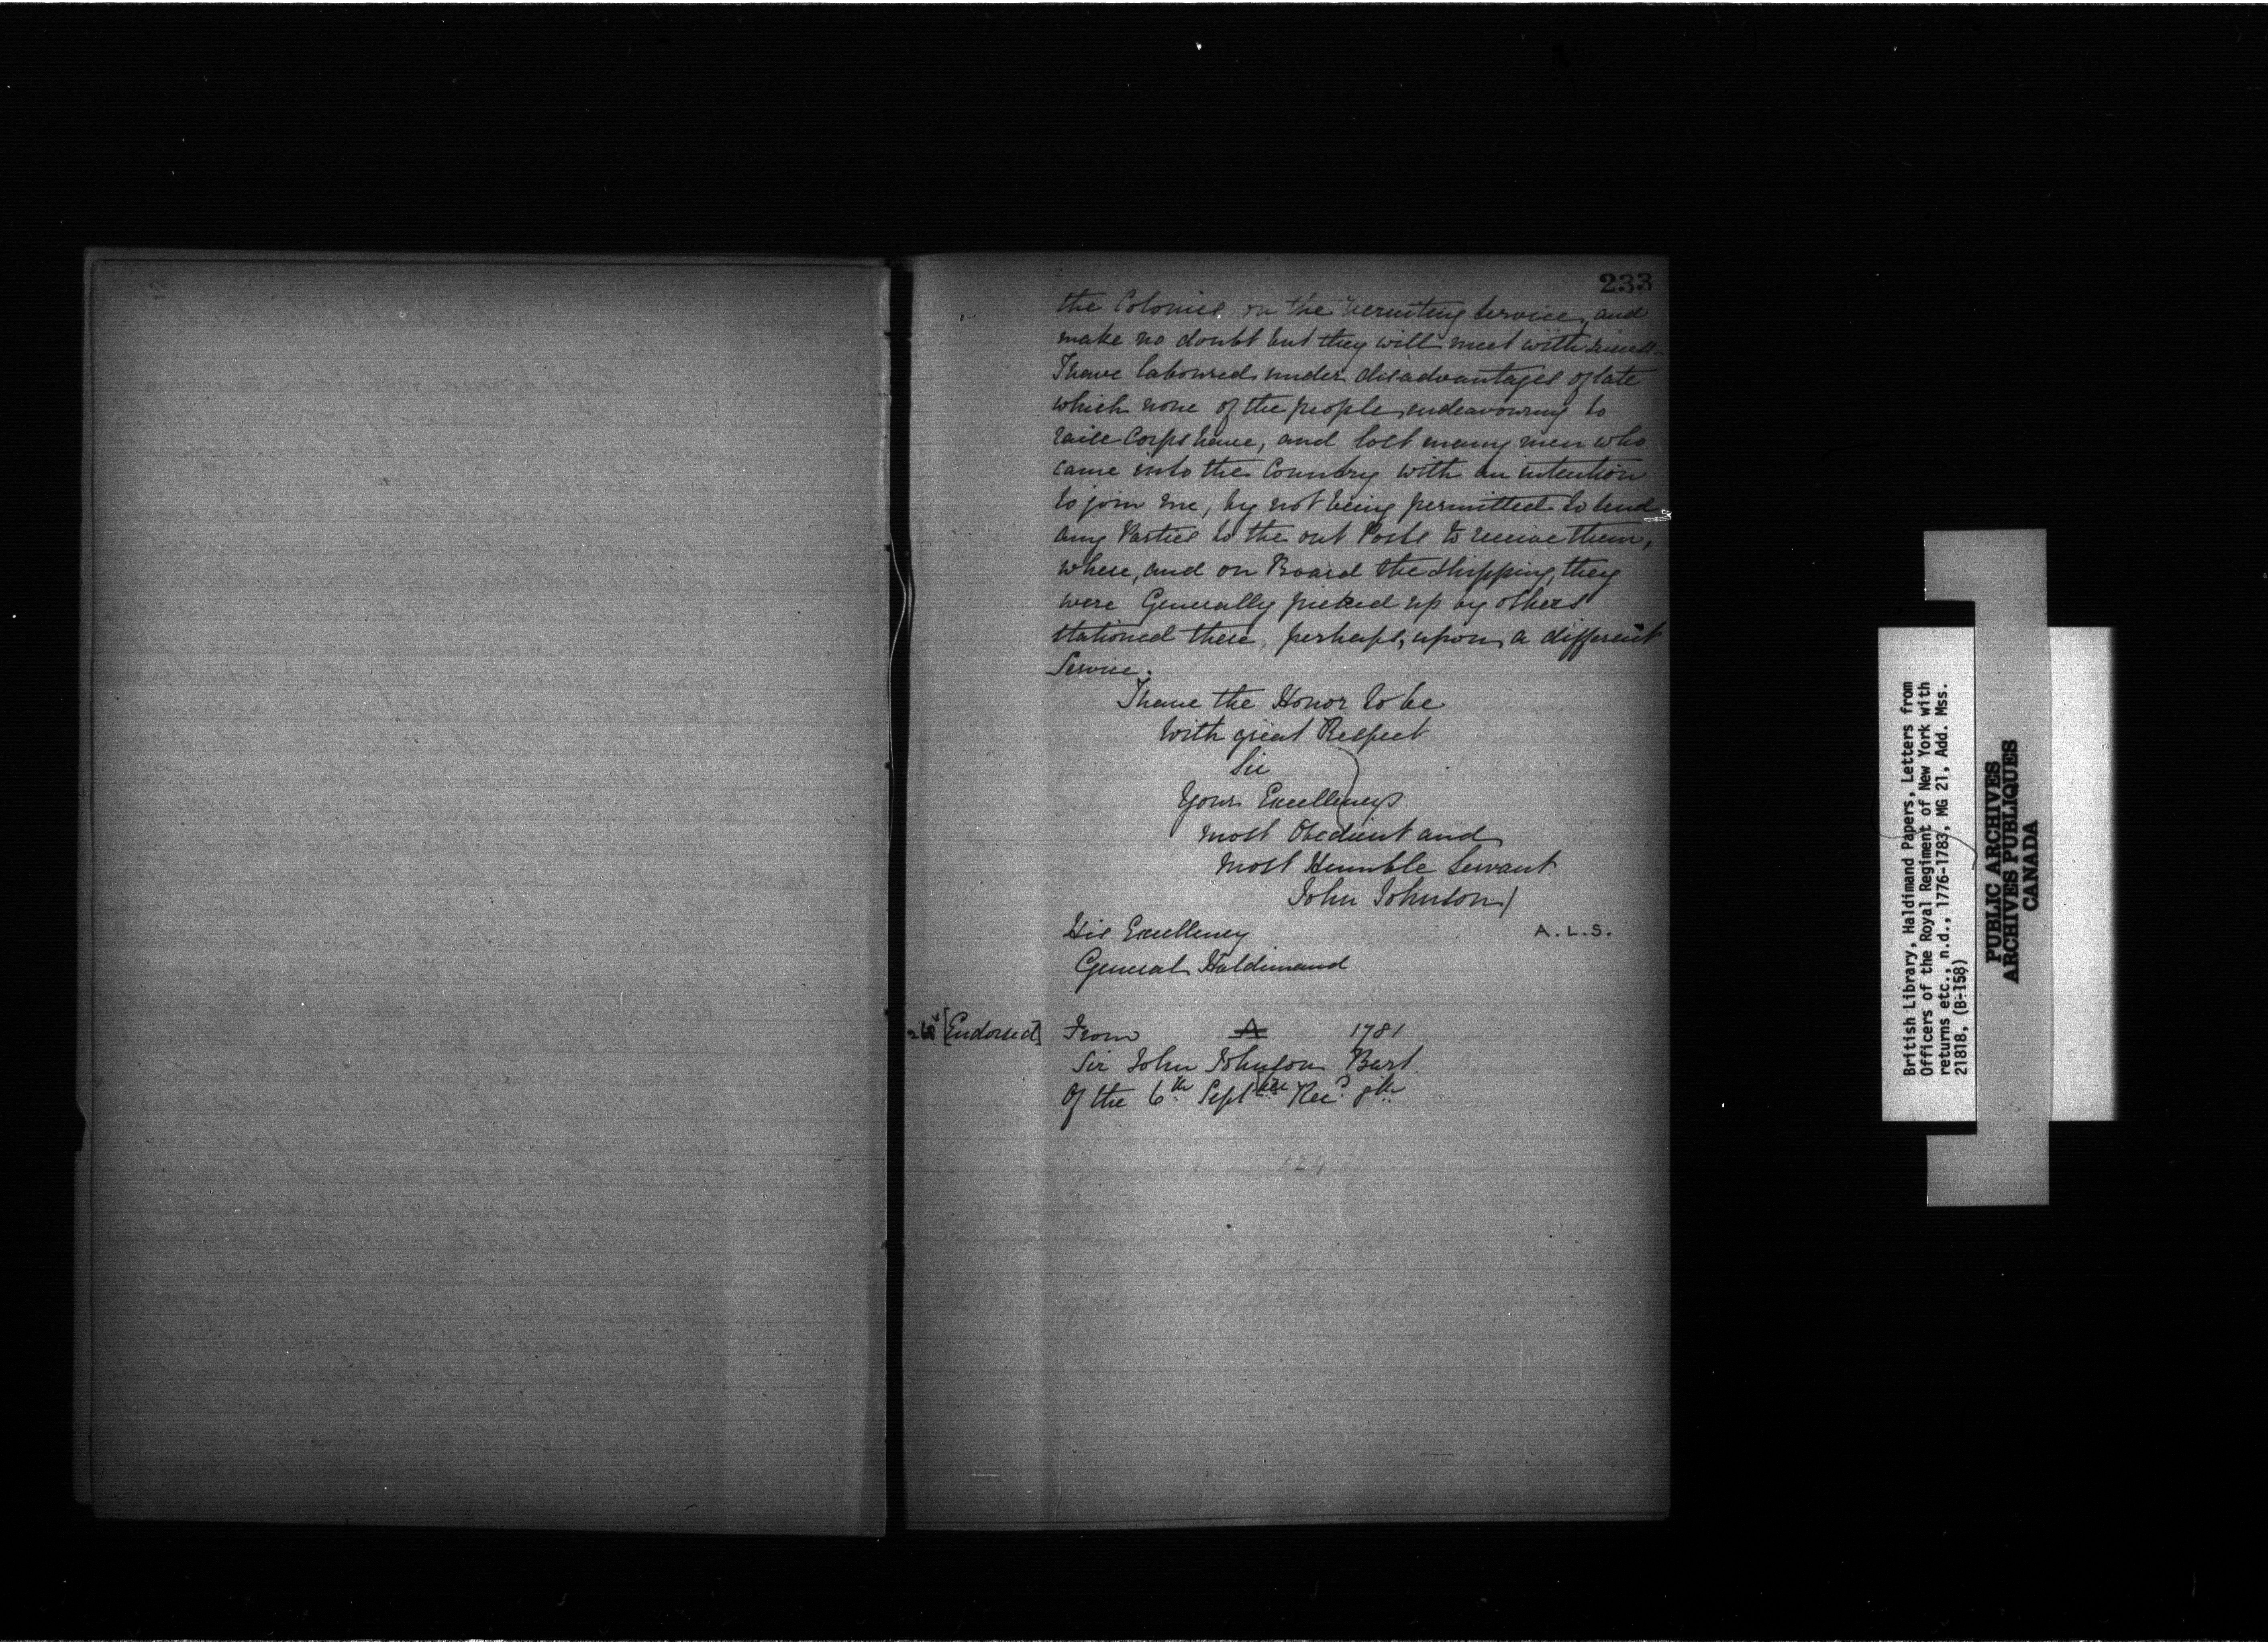 233
the Colonies on the Recruiting Service, and
make no doubt but they will meet with success—
I have laboured under disadvantages of late
which none of the people endeavouring to
raise Corps have, and lost many men who
came into the Country with an intention
to join me, by not being permitted to send
any Parties to the out Posts to receive them,
where, and on Board the Shipping, they
were Generally picked up by others
stationed there, perhaps, upon a different
Service.
I have the Honor to be
With great Respect
Sir
Your Excellencys
most Obedient and
most Humble Servant
John Johnson
His Excellency
A.L.S.
General Haldimand
[Endorsed] From A 1781
Sir John Johnson Bart.
Of the 6th Septbre Recd 8th
British Library, Haldimand Papers, Letters from
Officers of the Royal Regiment of New York with
returns etc., n.d., 1776-1783, MG 21, Add. Mss.
21818, (B-158)
PUBLIC ARCHIVES
ARCHIVES PUBLIQUES
CANADA